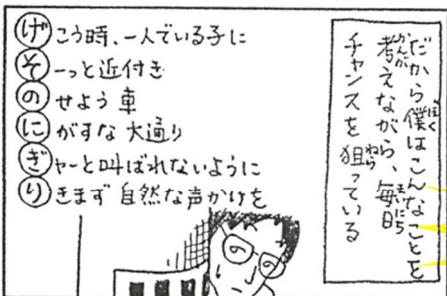 だから僕はこんなことを
考えながら、毎日
チャンスを狙っている
げこう時、一人でいる子に
そーっと近付き
のせよう車
にがすな大通り
ぎャーと叫ばれないように
りきまず自然な声かけを